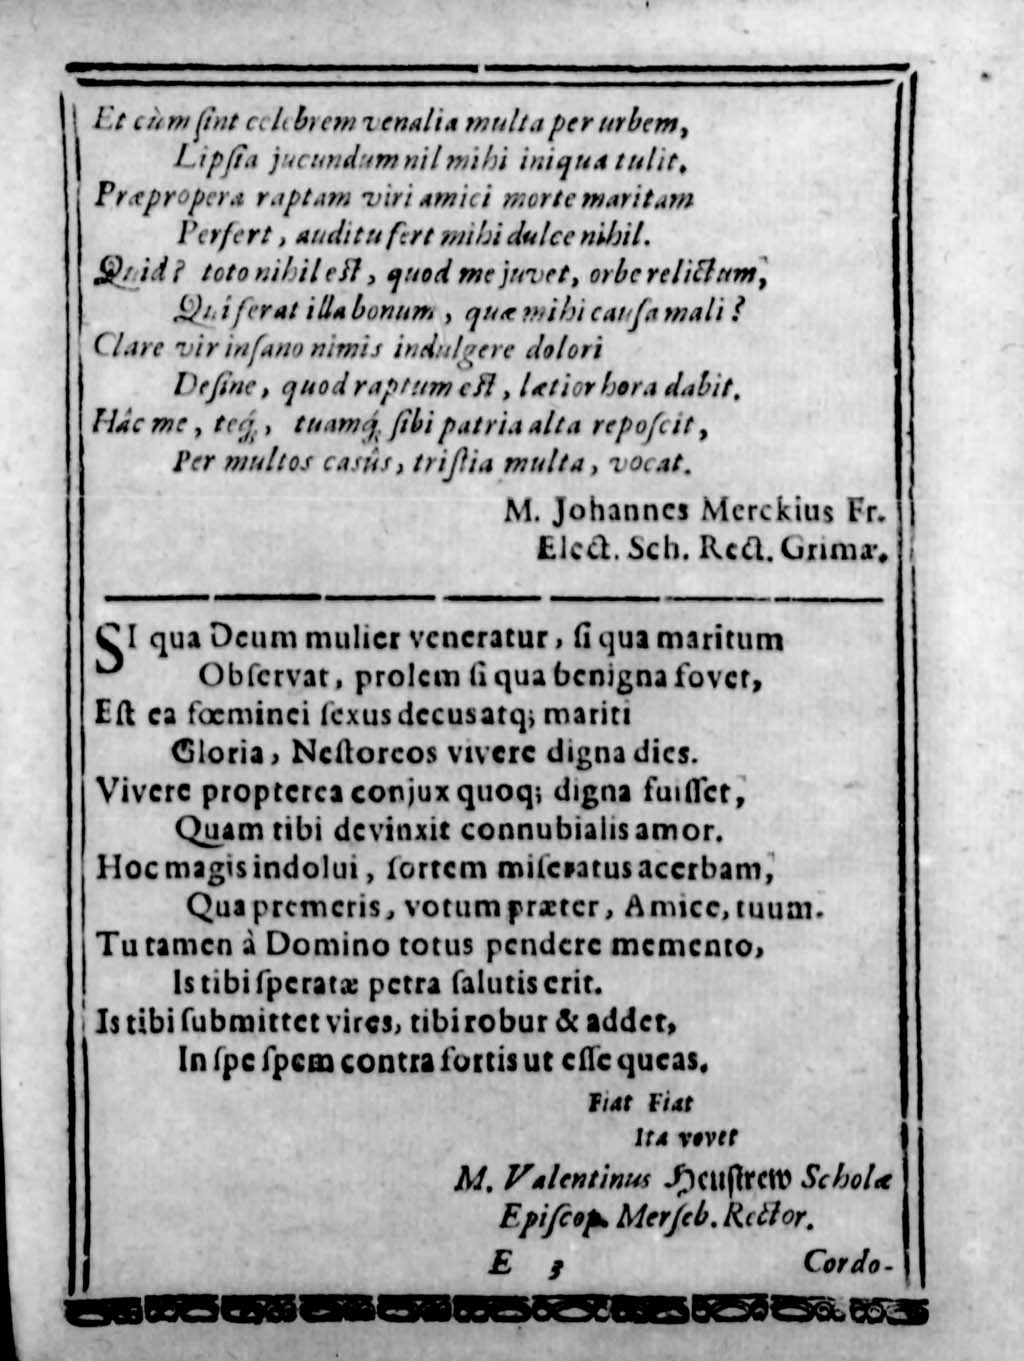 Et cùm ſint celebrem venalia multa per urbem,
Lipſia jucundum nil mihi iniqua tulit.
Præpropera raptam viri amici morte maritam
Perfert, auditu fert mihi dulce nihil.
Quid? toto nihil est, quod me juvet, orbe relictum,
Quî ferat illa bonum, quæ mihi cauſa mali?
Clare vir inſano nimis indulgere dolori
Deſine, quod raptum est, lætior hora dabit.
Hâc me, teq́;, tuamq́; ſibi patria alta repoſcit,
Per multos casûs, triſtia multa, vocat.
M. Johannes Merckius Fr.
Elect. Sch. Rect. Grimæ.
SI qua Deum mulier veneratur, ſi qua maritum
Obſervat, prolem ſi qua benigna fovet,
Eſt ea fœminei ſexus decus atq; mariti
Gloria, Neſtoreos vivere digna dies.
Vivere propterea conjux quoq; digna fuiſſet,
Quam tibi devinxit connubialis amor.
Hoc magis indolui, ſortem miſeratus acerbam,
Qua premeris, votum præter, Amice, tuum.
Tu tamen à Domino totus pendere memento,
Is tibi ſperatæ petra ſalutis erit.
Is tibi ſubmittet vires, tibi robur & addet,
In ſpe ſpem contra fortis ut eſſe queas.
Fiat Fiat
Ita vovet
M. Valentinus Heuſtrew Scholæ
Epiſcop. Merſeb. Rector.
E 3 Cordo-